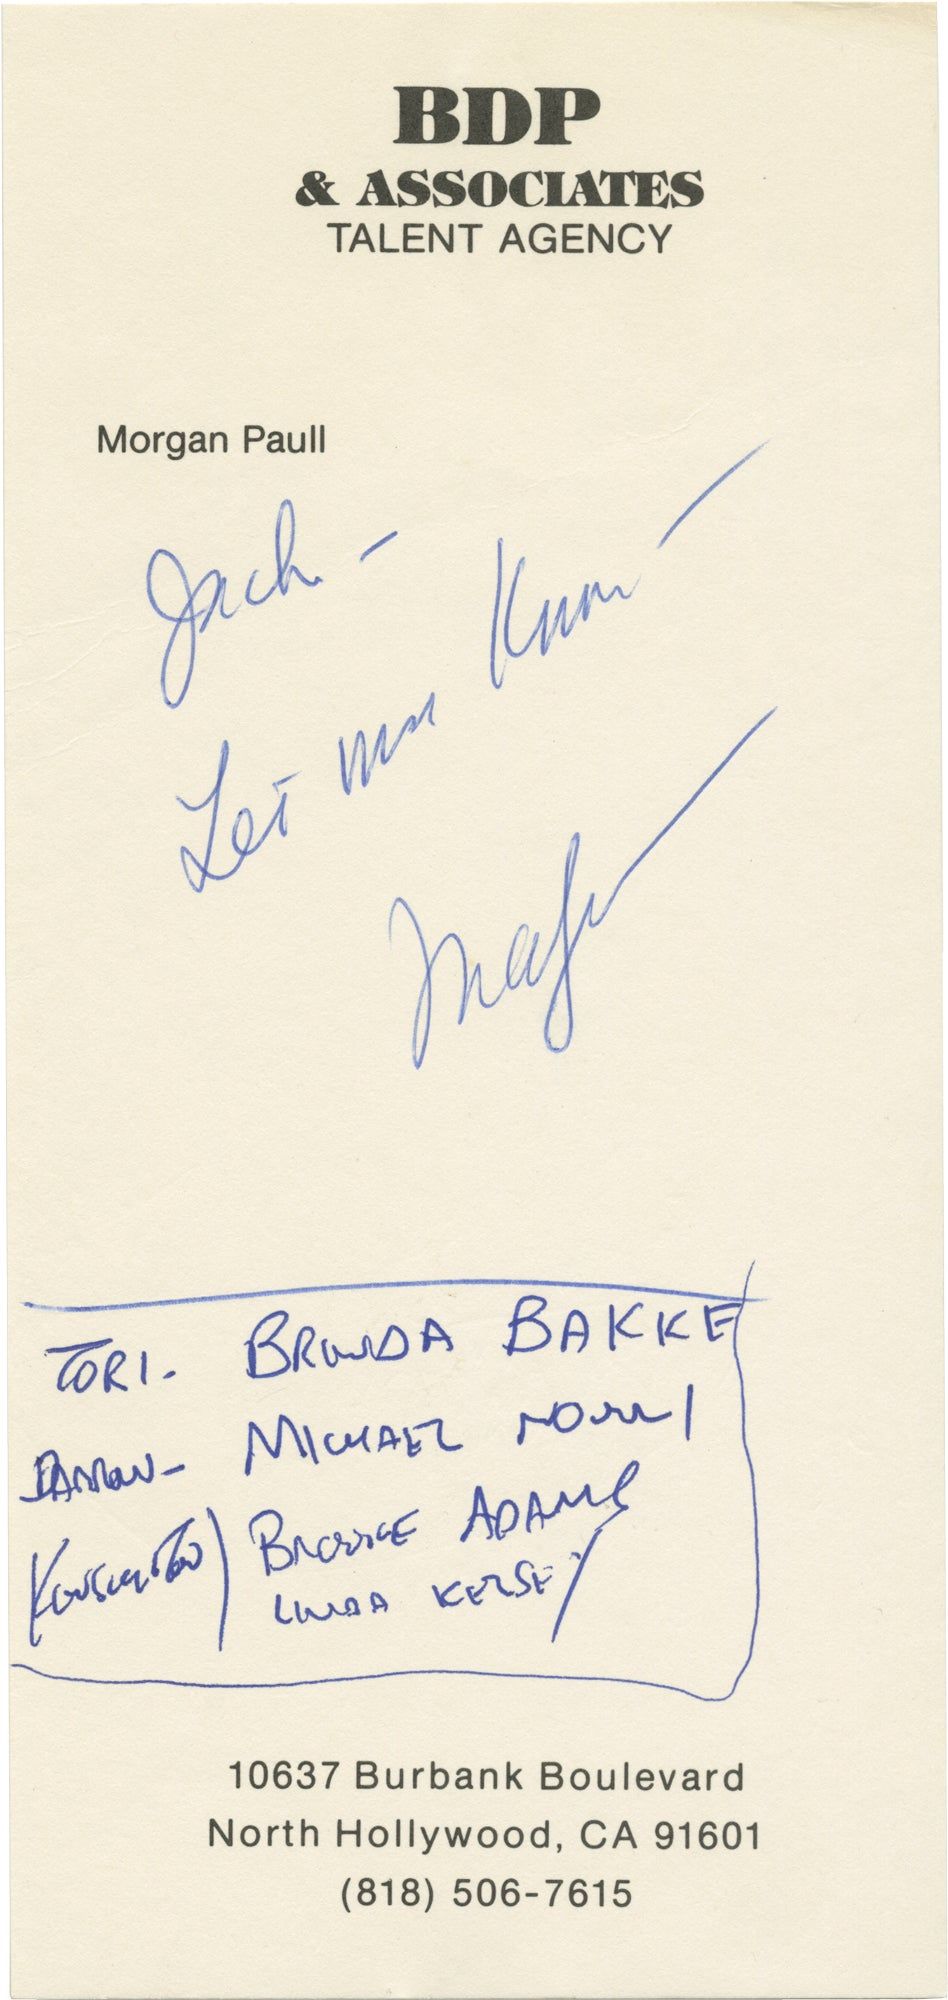 BDP
& ASSOCIATES
TALENT AGENCY
Morgan Paull
Jack -
Let me Know -
Morgan
TORI. BRENDA BAKKE
DAMON - MICHAEL NOURI
BROOKE ADAMS
LINDA KELSEY
10637 Burbank Boulevard
North Hollywood, CA 91601
(818) 506-7615